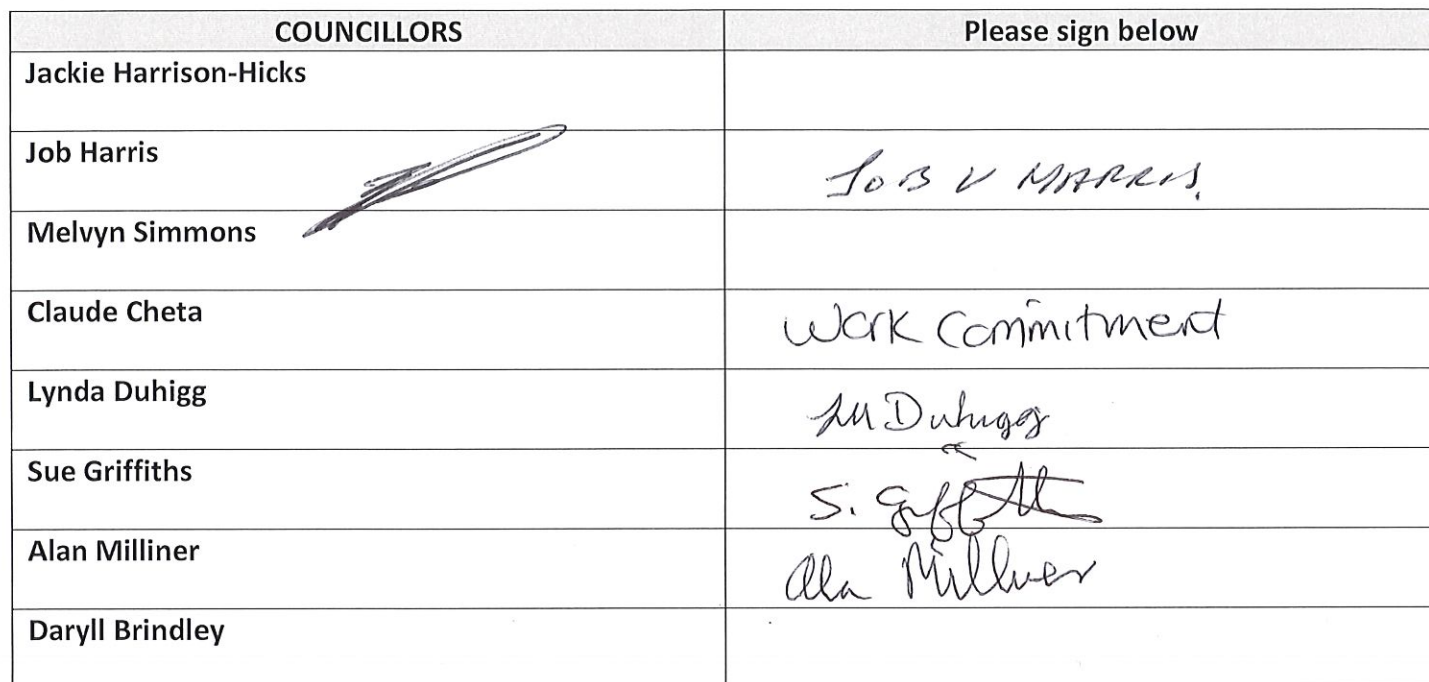 COUNCILLORS Please sign below
Jackie Harrison-Hicks
Job Harris JOB V HARRIS.
Melvyn Simmons
Claude Cheta Work Commitment
Lynda Duhigg LM Duhigg
Sue Griffiths S. Griffiths
Alan Milliner Alan Milliner
Daryll Brindley